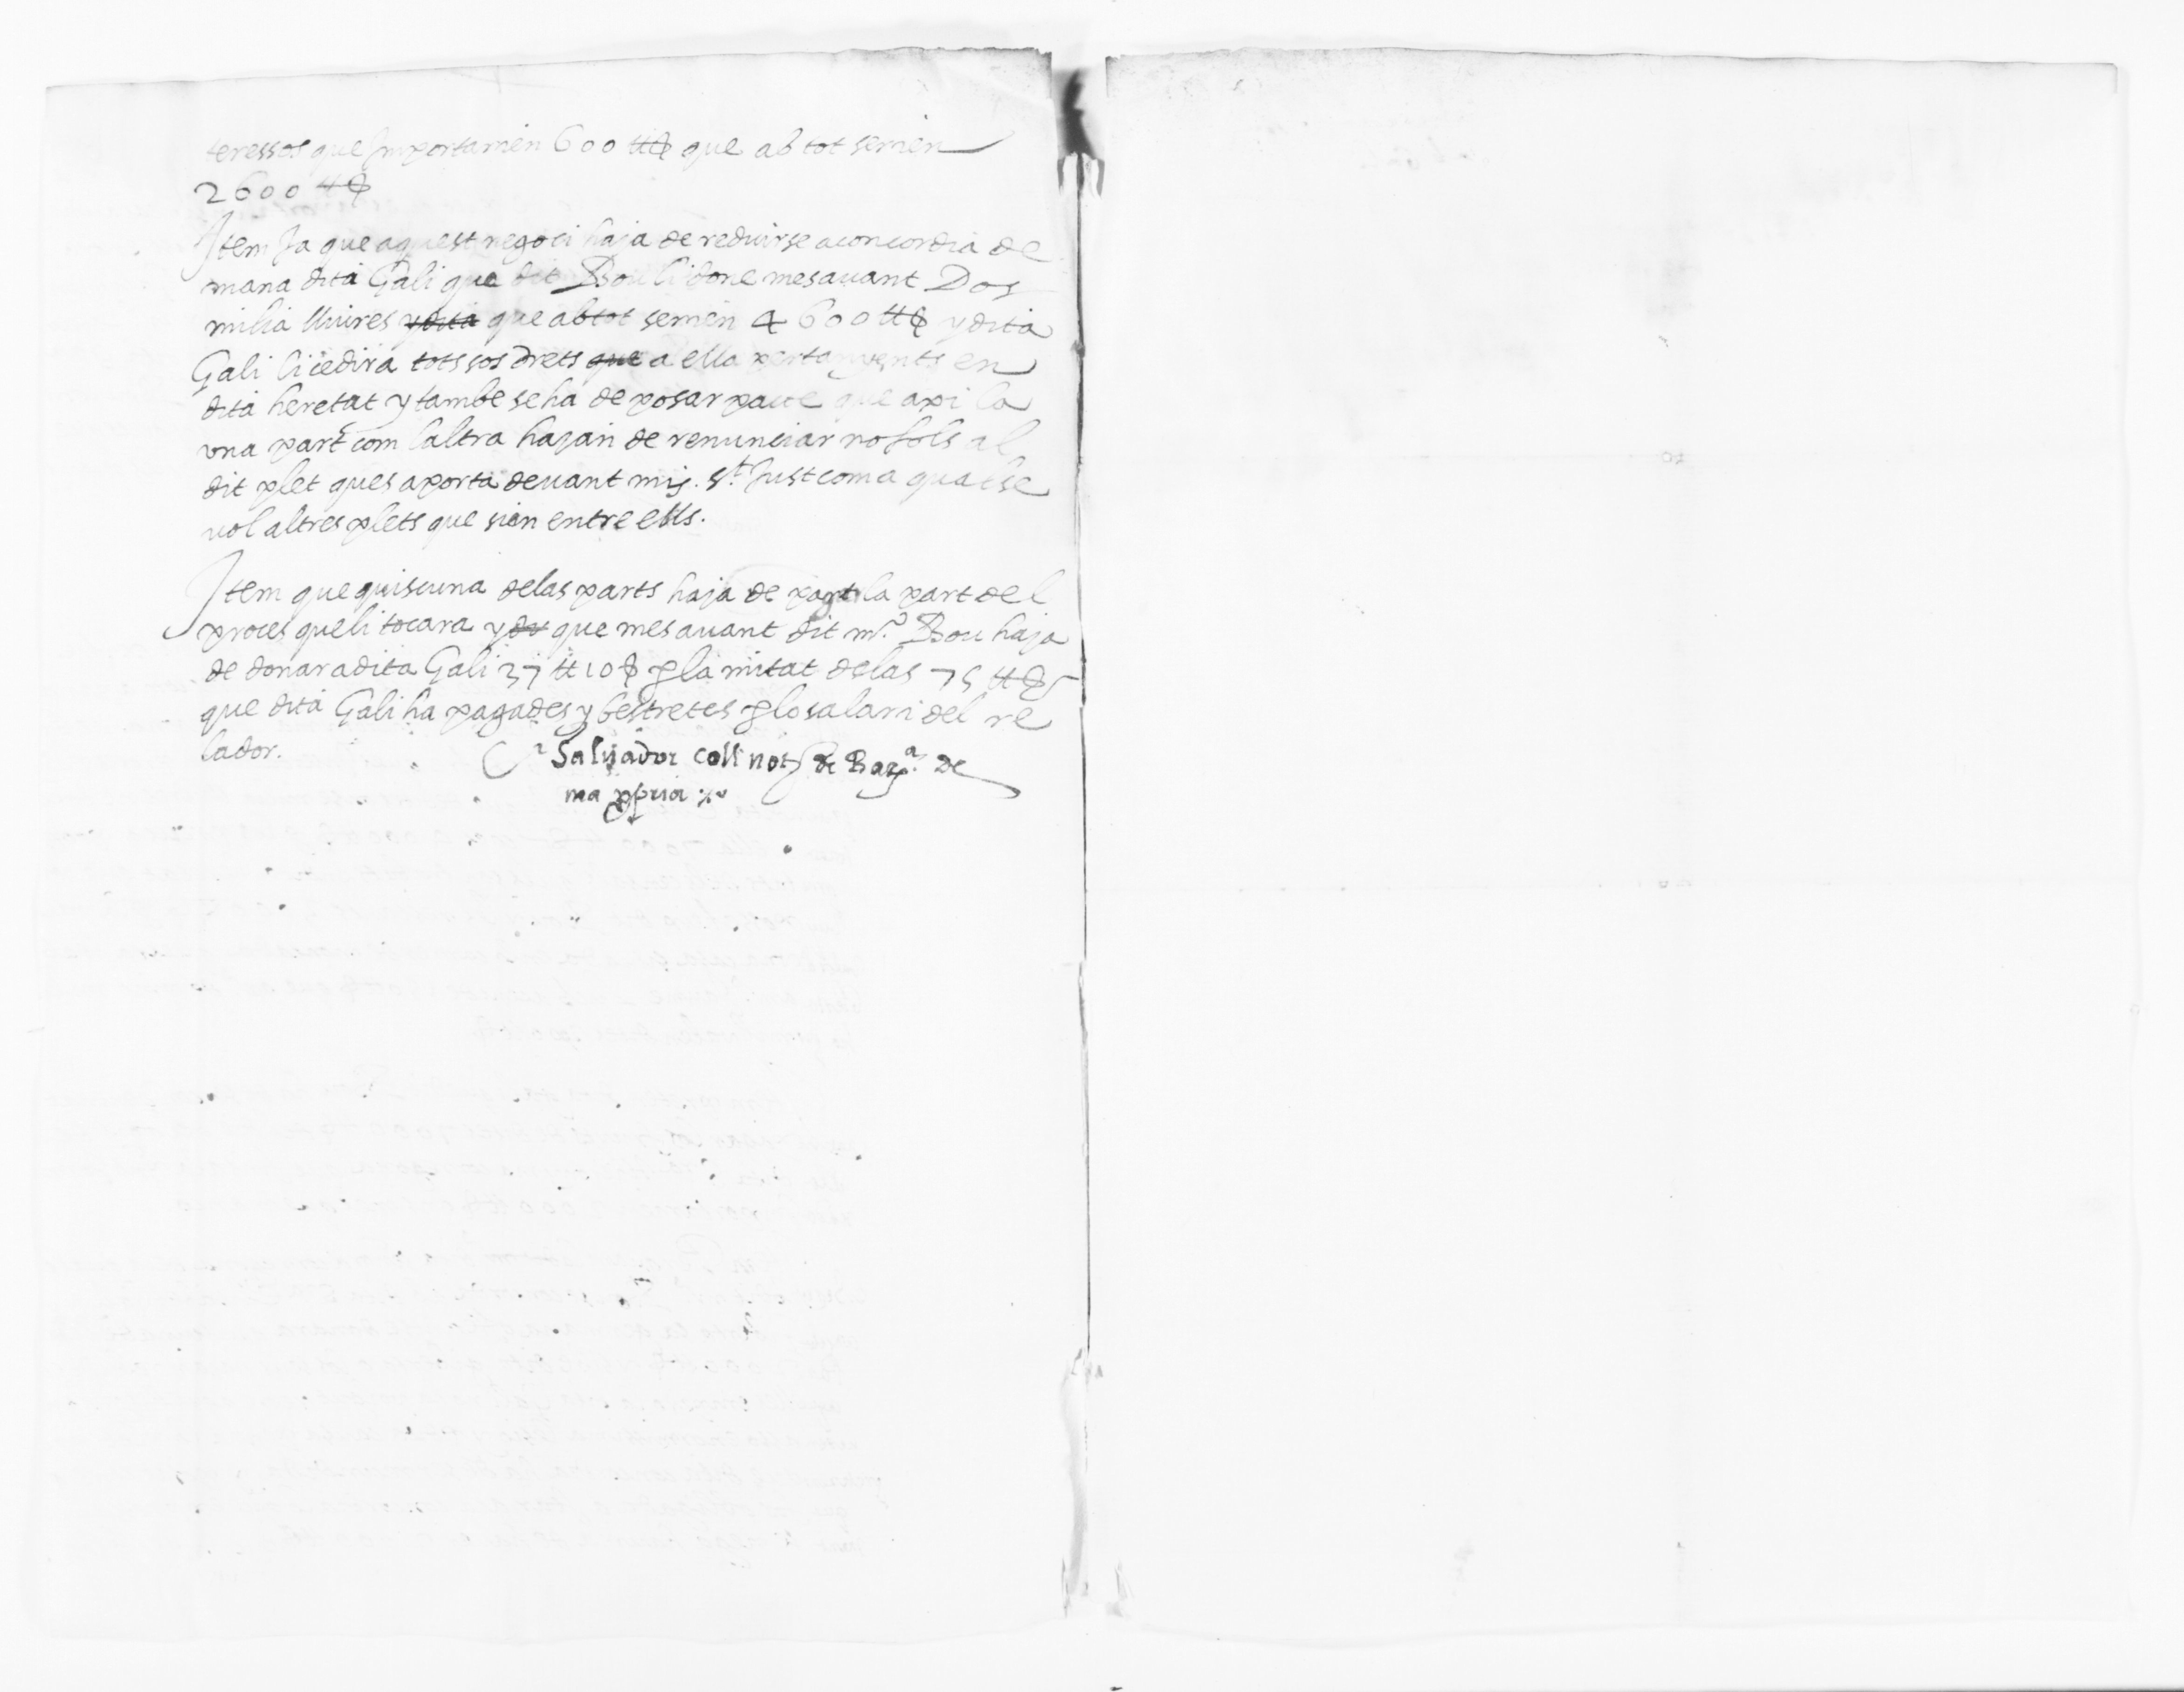 teressos que Importarien 600 ₶ que ab tot serien
2600 ₶
Item Ja que aquest negoci haja de reduirse a concordia de
mana dita Gali que dit Bou li done mes auant Dos
milia lliures y dita que ab tot serien 4600 ₶ y dita
Gali li cedira tots sos drets que a ella pertanyents en
dita heretat y tambe se ha de posar pacte que axi la
vna part com laltra hajan de renunciar no sols al
dit plet ques aporta deuant mis. St. Just com a qualse
uol altres plets que sien entre ells.
Item que quiscuna de las parts haja de pagar la part del
proces que li tocara y du que mes auant dit mº Bou haja
de donar a dita Gali 37 ₶ 10 ß p la mitat de las 75 ₶ ß
que dita Gali ha pagades y bestretes p lo salari del re
lador.
Saluador Coll not de Barna de
ma ppria